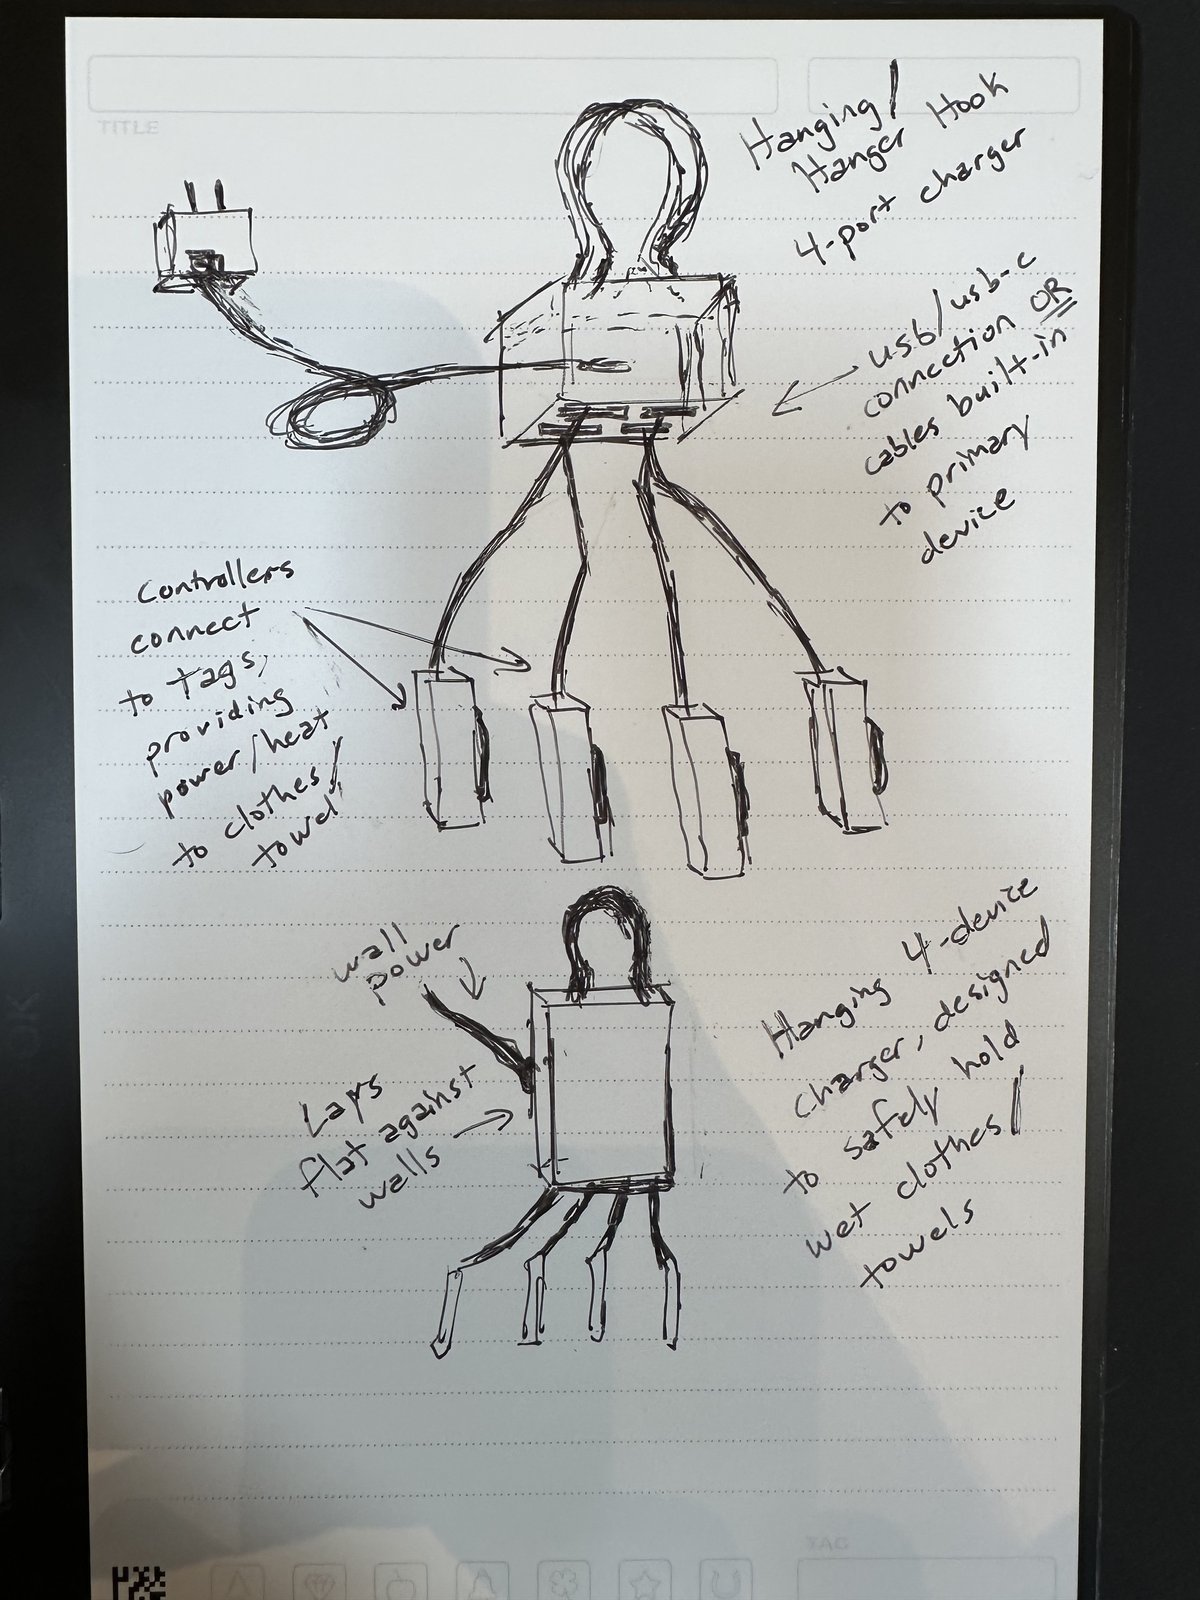 TITLE
Hanging/
Hanger Hook
4-port charger
usb/usb-c
connection OR
cables built-in
to primary
device
Controllers
connect
to tags,
providing
power/heat
to clothes/
towel
wall
power
Lays
flat against
walls
Hanging 4-device
charger, designed
to safely hold
wet clothes/
towels
TAG